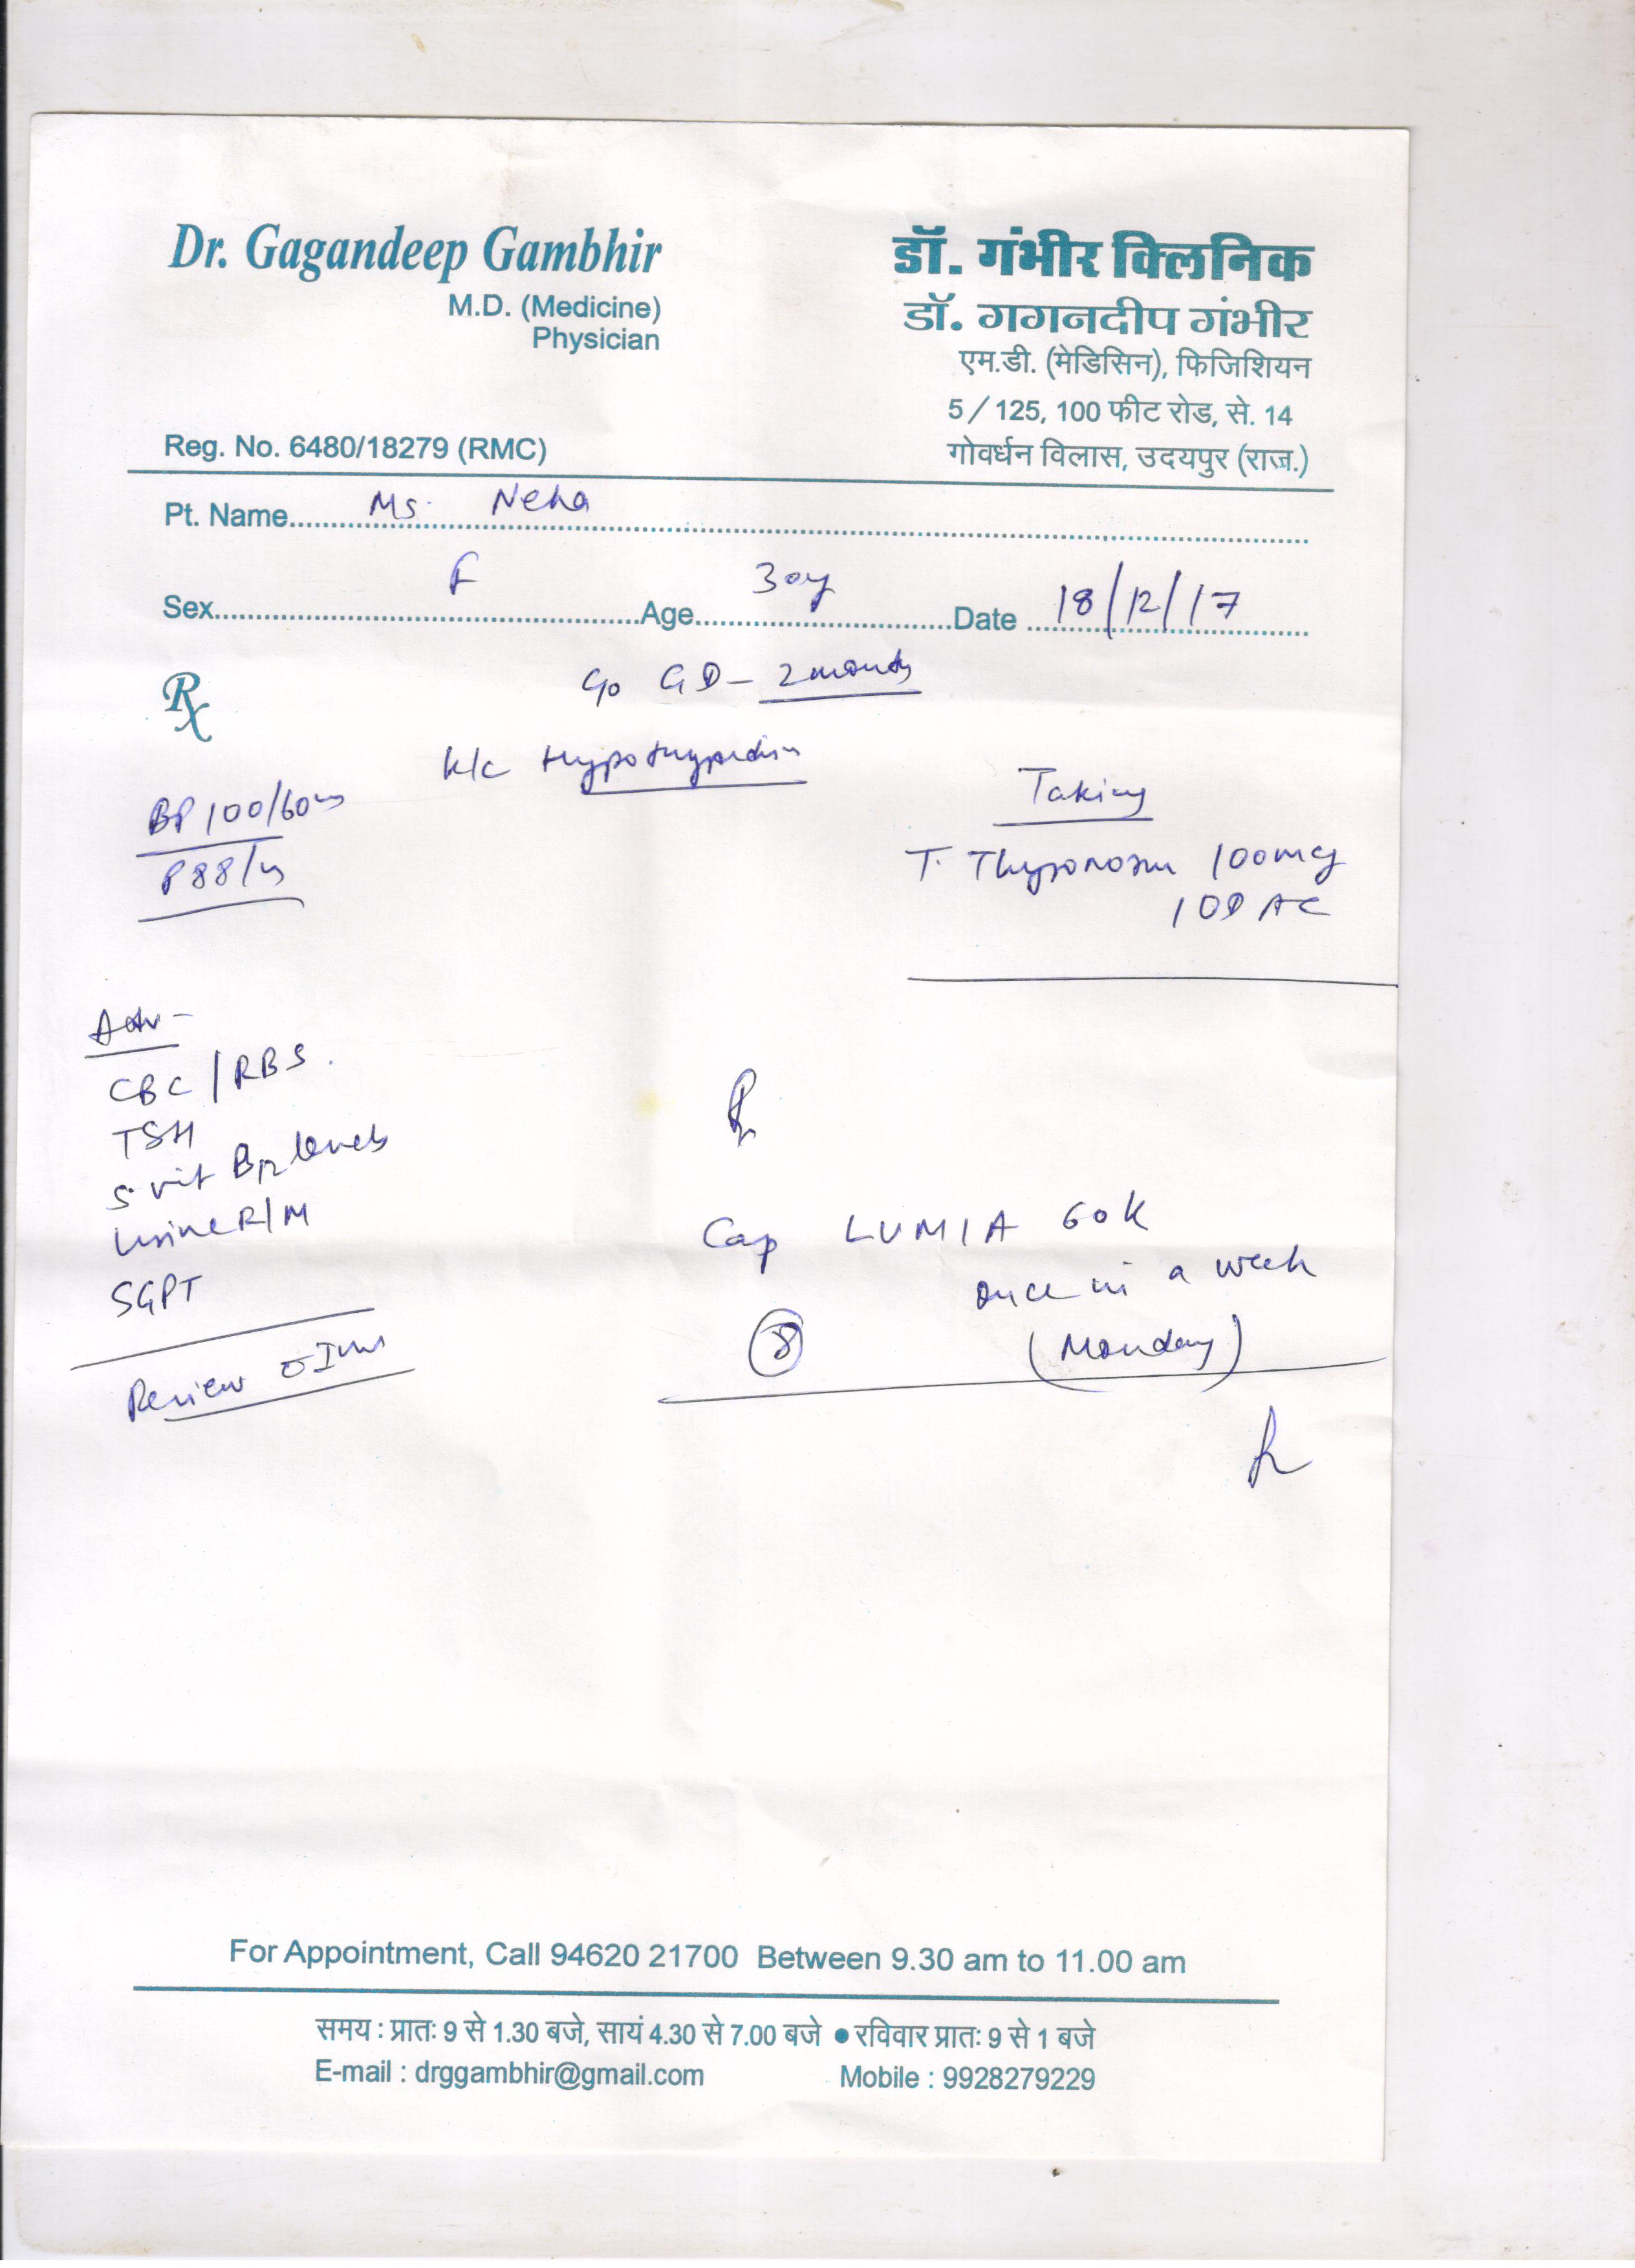 Dr. Gagandeep Gambhir
M.D. (Medicine)
Physician
Reg. No. 6480/18279 (RMC)
डॉ. गंभीर क्लिनिक
डॉ. गगनदीप गंभीर
एम.डी. (मेडिसिन), फिजिशियन
5/125, 100 फीट रोड, से. 14
गोवर्धन विलास, उदयपुर (राज.)
Pt. Name Ms. Neha
Sex F Age 30y Date 18/12/17
Rx
c/o GD - 2 months
k/c Hypothyroidism
BP 100/60
P 88/m
Taking
T. Thyronorm 100mcg
1 OD AC
Adv -
CBC / RBS.
TSH
S. vit B12 levels
Urine R/M
SGPT
Review
Rx
Cap LUMIA 60K
once in a week
(Monday)
8
For Appointment, Call 94620 21700 Between 9.30 am to 11.00 am
समय : प्रातः 9 से 1.30 बजे, सायं 4.30 से 7.00 बजे ● रविवार प्रातः 9 से 1 बजे
E-mail : drggambhir@gmail.com Mobile : 9928279229